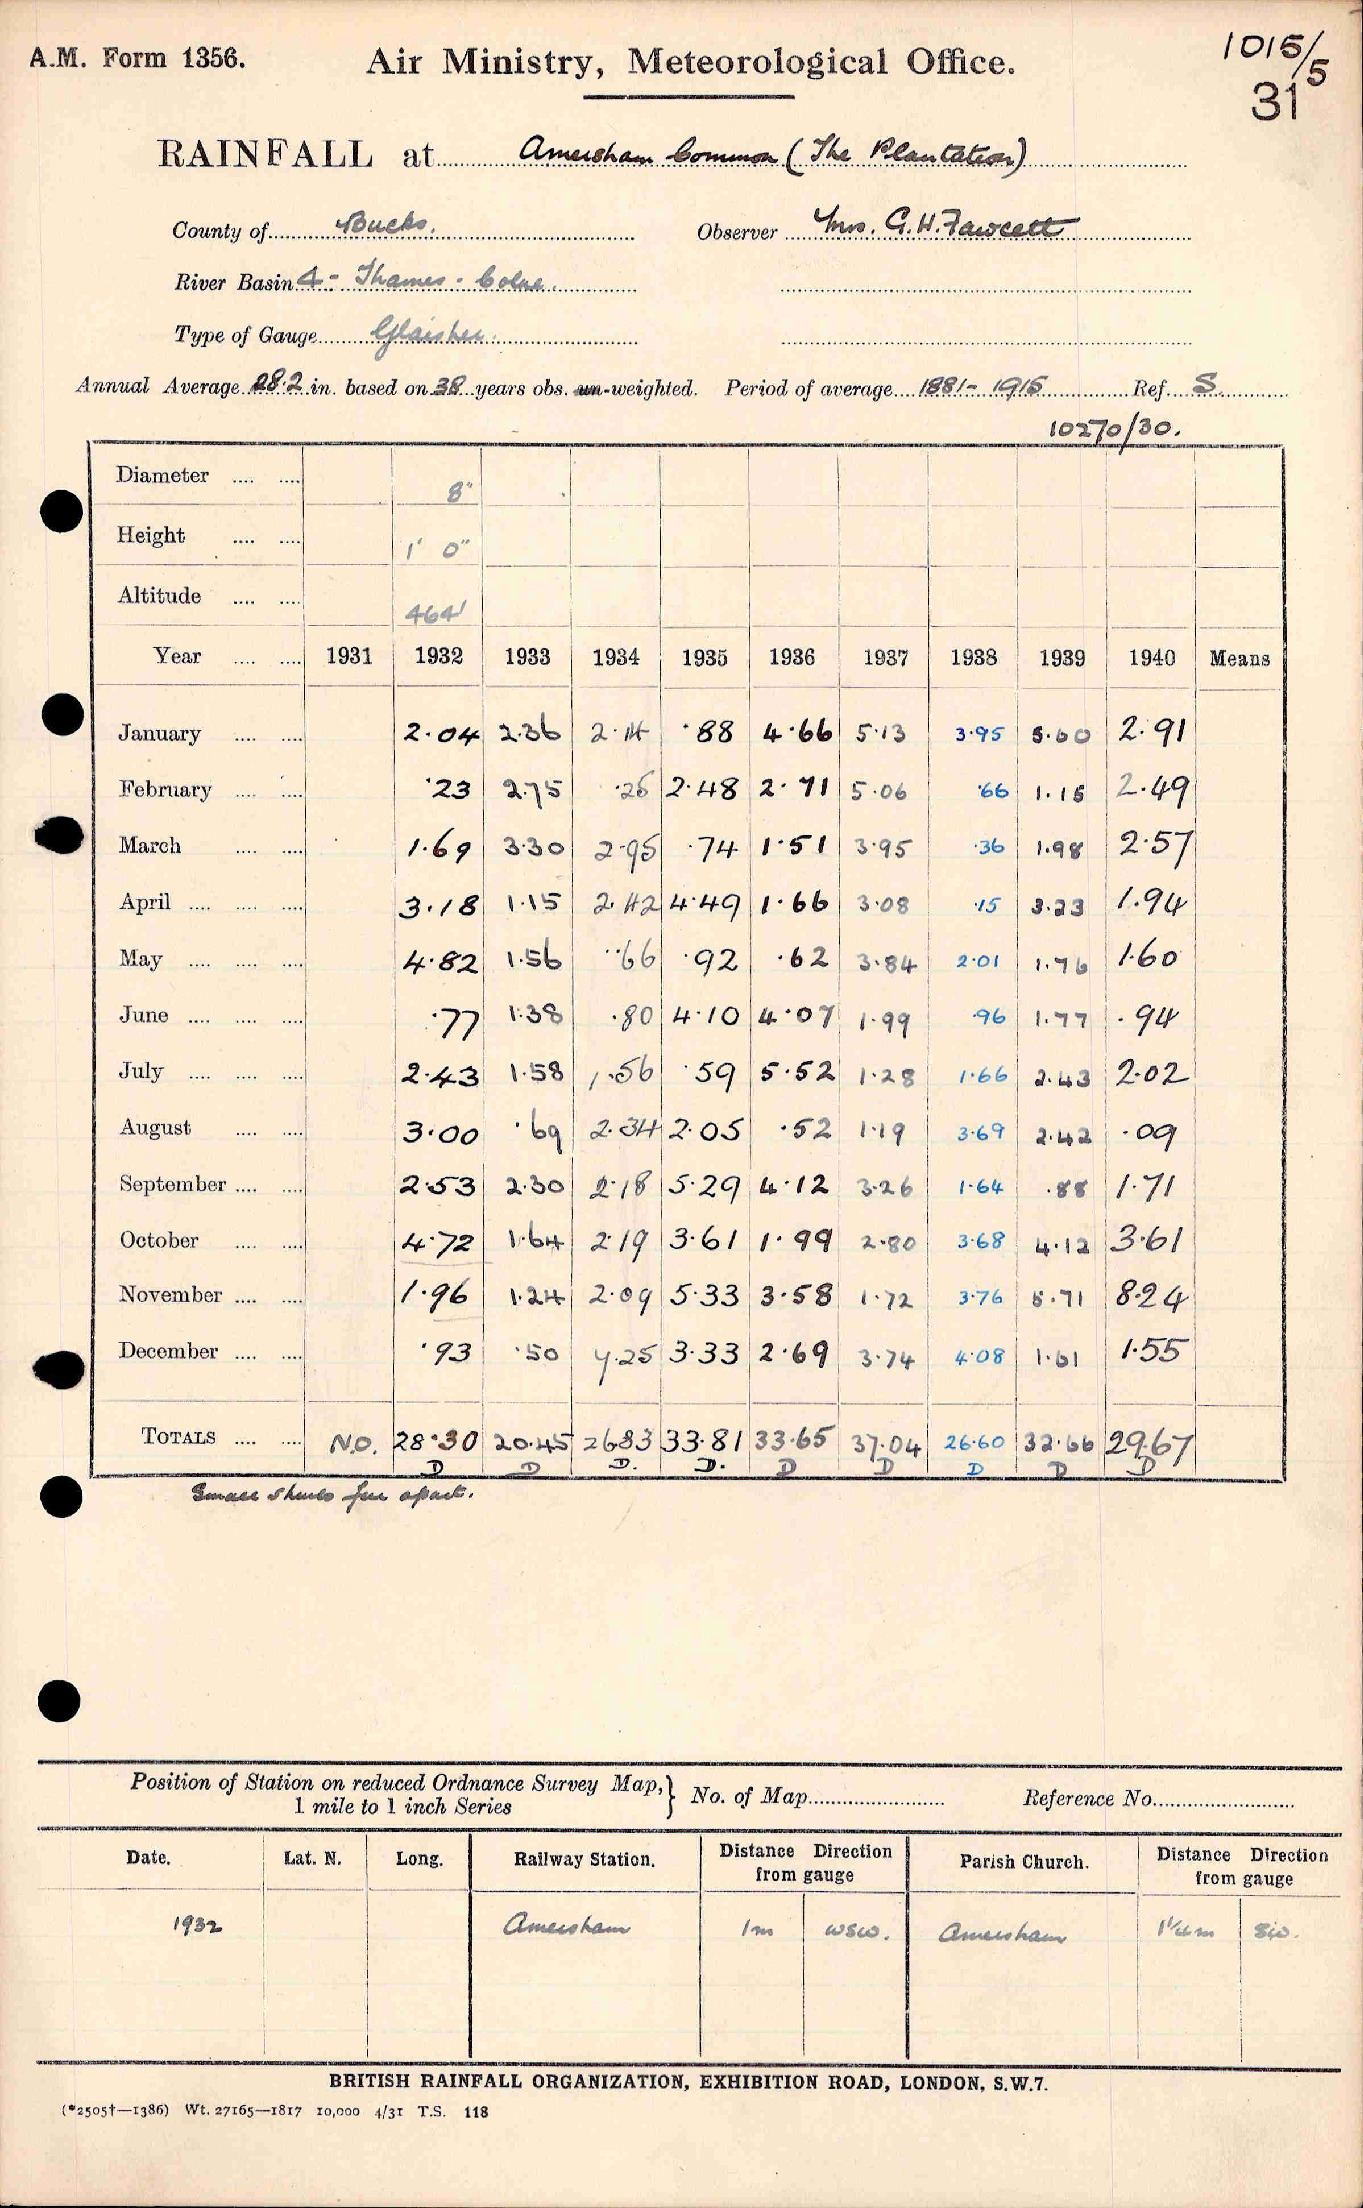 A.M. Form 1356.
Air Ministry, Meteorological Office.
1015/5
31
RAINFALL at Amersham Common (The Plantation)
County of Bucks. Observer Mrs. G.H. Fawcett
River Basin 4 - Thames - Colne.
Type of Gauge Glaisher.
Annual Average 28.2 in. based on 38 years obs. un-weighted. Period of average 1881-1915 Ref. S.
10270/30.
Diameter .... .... 8"
Height .... .... 1' 0"
Altitude .... .... 464'
Year .... .... 1931 1932 1933 1934 1935 1936 1937 1938 1939 1940 Means
January .... .... 2.04 2.36 2.14 .88 4.66 5.13 3.95 5.60 2.91
February .... .... .23 2.75 .25 2.48 2.71 5.06 .66 1.15 2.49
March .... .... 1.69 3.30 2.95 .74 1.51 3.95 .36 1.98 2.57
April .... .... .... 3.18 1.15 2.42 4.49 1.66 3.08 .15 3.23 1.94
May .... .... .... 4.82 1.56 .66 .92 .62 3.84 2.01 1.76 1.60
June .... .... .... .77 1.38 .80 4.10 4.07 1.99 .96 1.77 .94
July .... .... .... 2.43 1.58 1.56 .59 5.52 1.28 1.66 2.43 2.02
August .... .... 3.00 .69 2.34 2.05 .52 1.19 3.69 2.42 .09
September .... .... 2.53 2.30 2.18 5.29 4.12 3.26 1.64 .88 1.71
October .... .... 4.72 1.64 2.19 3.61 1.99 2.80 3.68 4.12 3.61
November .... .... 1.96 1.24 2.09 5.33 3.58 1.72 3.76 5.71 8.24
December .... .... .93 .50 7.25 3.33 2.69 3.74 4.08 1.61 1.55
TOTALS .... .... N.O. 28.30 20.45 26.83 33.81 33.65 37.04 26.60 32.66 29.67
D D D. D. D D D D D
Small shrubs few apart.
Position of Station on reduced Ordnance Survey Map,} No. of Map Reference No.
1 mile to 1 inch Series
Date. Lat. N. Long. Railway Station. Distance Direction from gauge Parish Church. Distance Direction from gauge
1932 Amersham 1m WSW. Amersham 1¼m SW.
BRITISH RAINFALL ORGANIZATION, EXHIBITION ROAD, LONDON, S.W.7.
(*2505†—1386) Wt. 27165—1817 10,000 4/31 T.S. 118